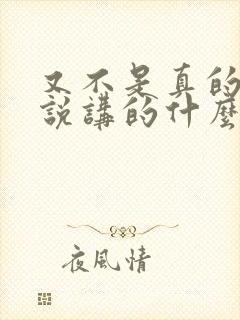 又不是真的
說講的什麼
夜風情